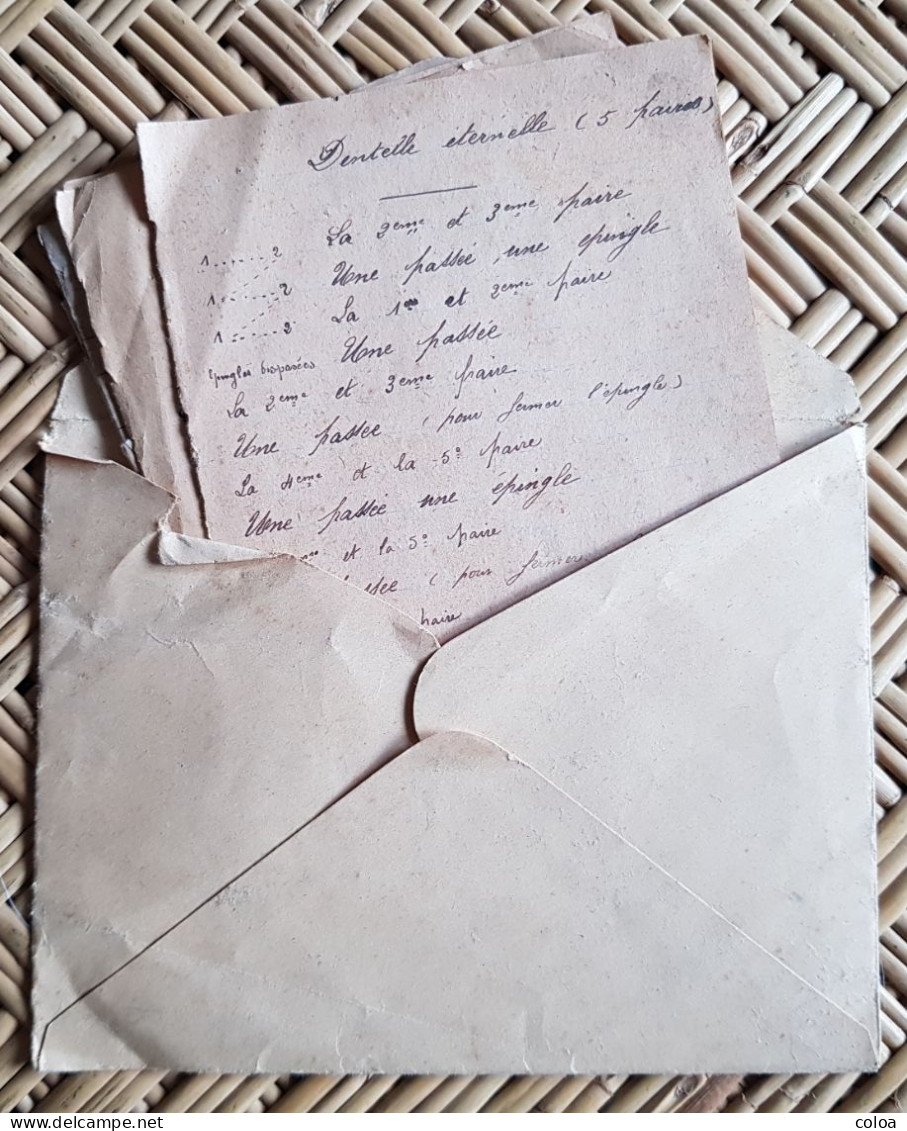 Dentelle eternelle (5 paires)
1......2 La 2eme et 3eme paire
1......2 Une passée, une épingle
1......2 La 1re et 2eme paire
Une passée
La 2eme et 3eme paire
Une passée (pour fermer l'épingle)
La 4eme et la 5e paire
Une passée une épingle
et la 5e paire
(pour fermer
paire
©DELCAMPE.NET
coloa